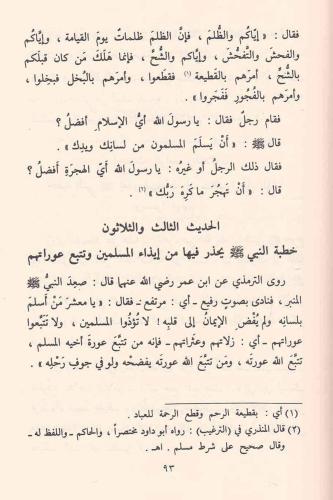 فقال : « إيّاكم والظُّلمَ ، فإنَّ الظلمَ ظلماتُ يومَ القيامة ، وإيّاكم
والفحشَ والتفحُّشَ ، وإيّاكم والشُّحَّ ، فإنما هَلَكَ مَن كان قبلَكم
بالشُّحِّ ، أمرَهم بالقطيعة (١) فقطَعوا ، وأمرَهم بالبُخل فبخِلوا ،
وأمرَهم بالفُجورِ فَفَجَروا » .
فقام رجلٌ فقال : يا رسولَ الله أيُّ الإسلامِ أفضلُ ؟
قال ﷺ : « أنْ يَسلَمَ المسلمون من لسانِك ويدِك » .
فقال ذلك الرجلُ أو غيرُه : يا رسولَ الله أيّ الهجرةِ أفضلُ ؟
قال : « أن تَهجُرَ ما كَرِهَ رَبُّك » (٢) .
الحديث الثالث والثلاثون
خطبة النبي ﷺ يحذر فيها من إيذاء المسلمين وتتبع عوراتهم
روى الترمذي عن ابن عمر رضي الله عنهما قال : صعِدَ النبيُّ ﷺ
المنبر ، فنادى بصوتٍ رفيع ـ أي : مرتفع ـ فقال : « يا معشرَ مَنْ أسلمَ
بلسانِه ولم يُفْضِ الإيمانُ إلى قلبِه ! لا تُؤذُوا المسلمين ، ولا تتَّبعوا
عوراتِهم ـ أي : زلاتهم وعثراتهم ـ فإنه من تتبَّعَ عورةَ أخيه المسلم ،
تتبَّعَ الله عورتَه ، ومَن تتبَّعَ الله عورتَه يفضحْه ولو في جوفِ رَحْلِه » .
(١) أي : بقطيعة الرحم وقطع الرحمة للعباد .
(٢) قال المنذري في (الترغيب) : رواه أبو داود مختصراً ، والحاكم ـ واللفظ له ـ
وقال صحيح على شرط مسلم . اهـ .
٩٣